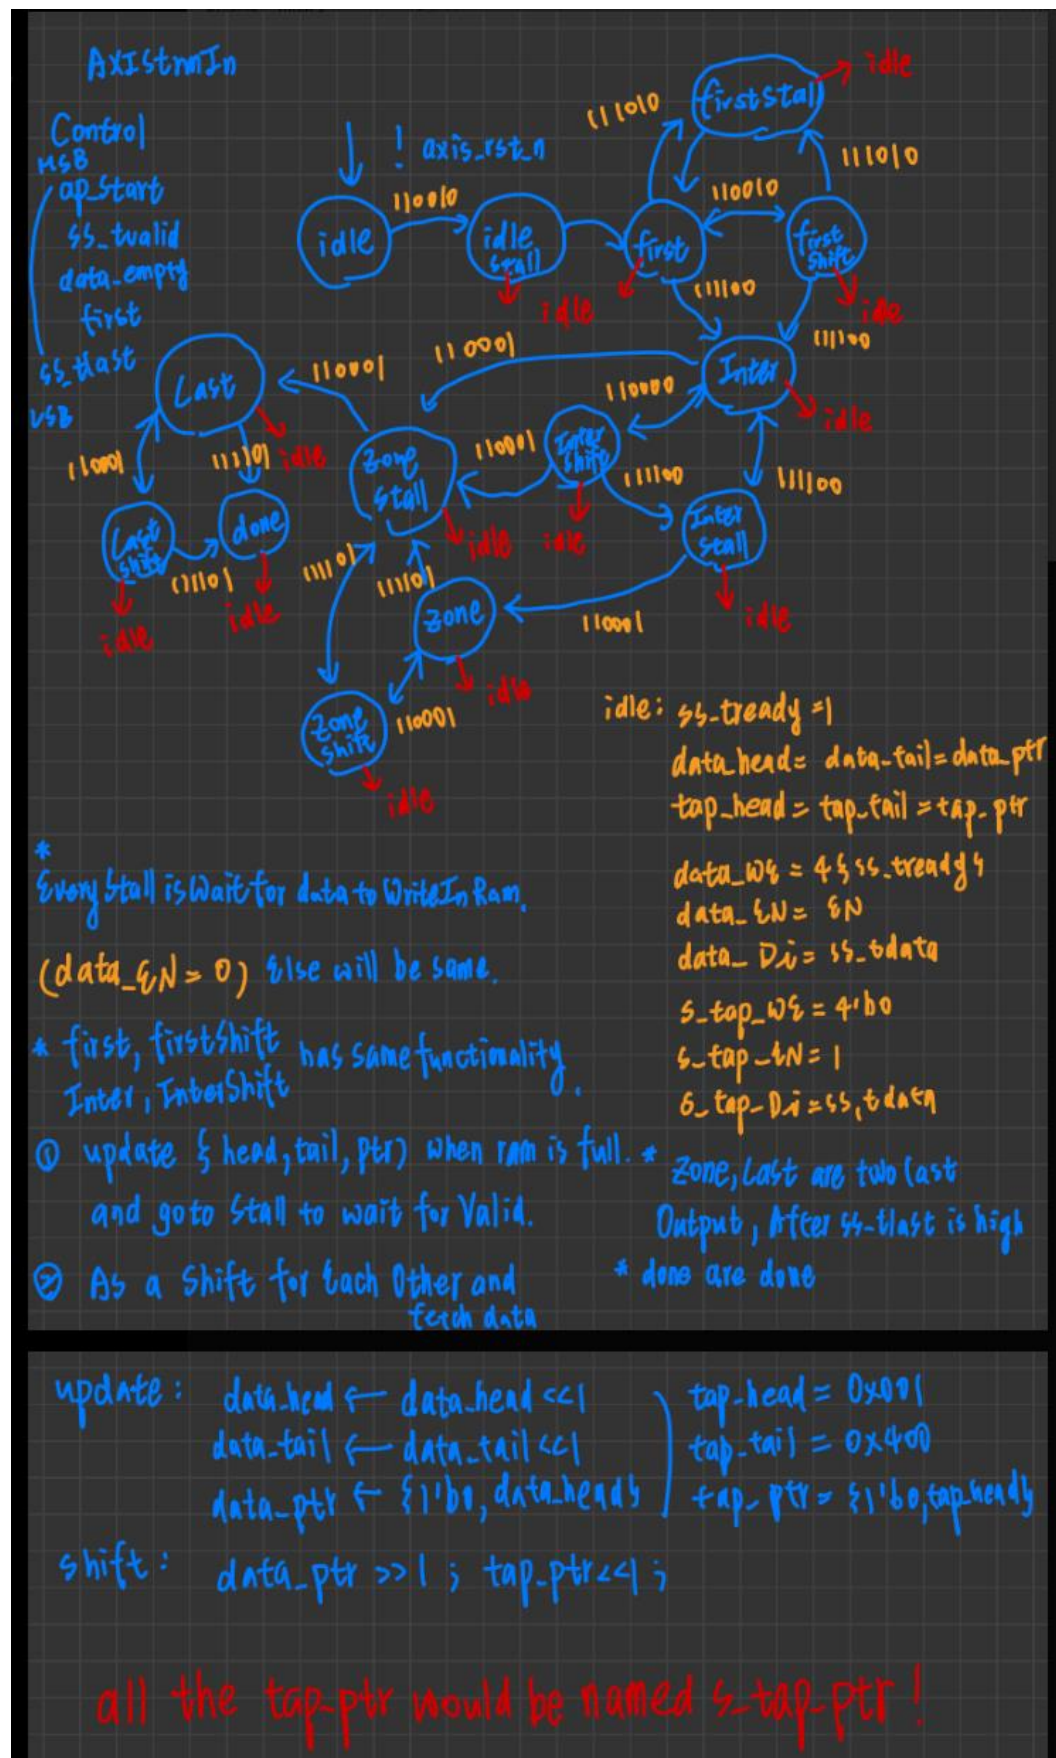 AXIStrmIn
Control
MSB
ap_start
ss_tvalid
data_empty
first
ss_tlast
LSB
! axis_rst_n
idle
110010
idle stall
idle
first
idle
111010
first stall
idle
111010
110010
first shift
idle
111100
111100
Inter
idle
110001
110000
Inter shift
idle
110001
111100
111100
Inter stall
idle
110001
zone stall
idle
110001
Last
idle
110001
111101
Last shift
idle
111101
done
idle
111101
111101
zone
idle
110001
zone shift
idle
idle: ss_tready =1
data_head = data_tail = data_ptr
tap_head = tap_tail = tap_ptr
data_WE = 4{ss_tready}
data_EN = EN
data_Di = ss_tdata
s_tap_WE = 4'b0
s_tap_EN = 1
s_tap_Di = ss_tdata
*
Every Stall is Wait for data to WriteIn Ram.
(data_EN = 0) Else will be same.
* first, firstShift
Inter, InterShift has same functionality.
① update {head, tail, ptr} when ram is full.
and goto Stall to wait for Valid.
② As a Shift for Each Other and
fetch data
* Zone, Last are two last
Output, After ss-tlast is high
* done are done
update: data_head ← data_head <<1
data_tail ← data_tail <<1
data_ptr ← {1'b0, data_head}
tap_head = 0x001
tap_tail = 0x400
tap_ptr = {1'b0, tap_head}
shift: data_ptr >>1 ; tap_ptr <<1 ;
all the tap_ptr would be named s_tap_ptr !